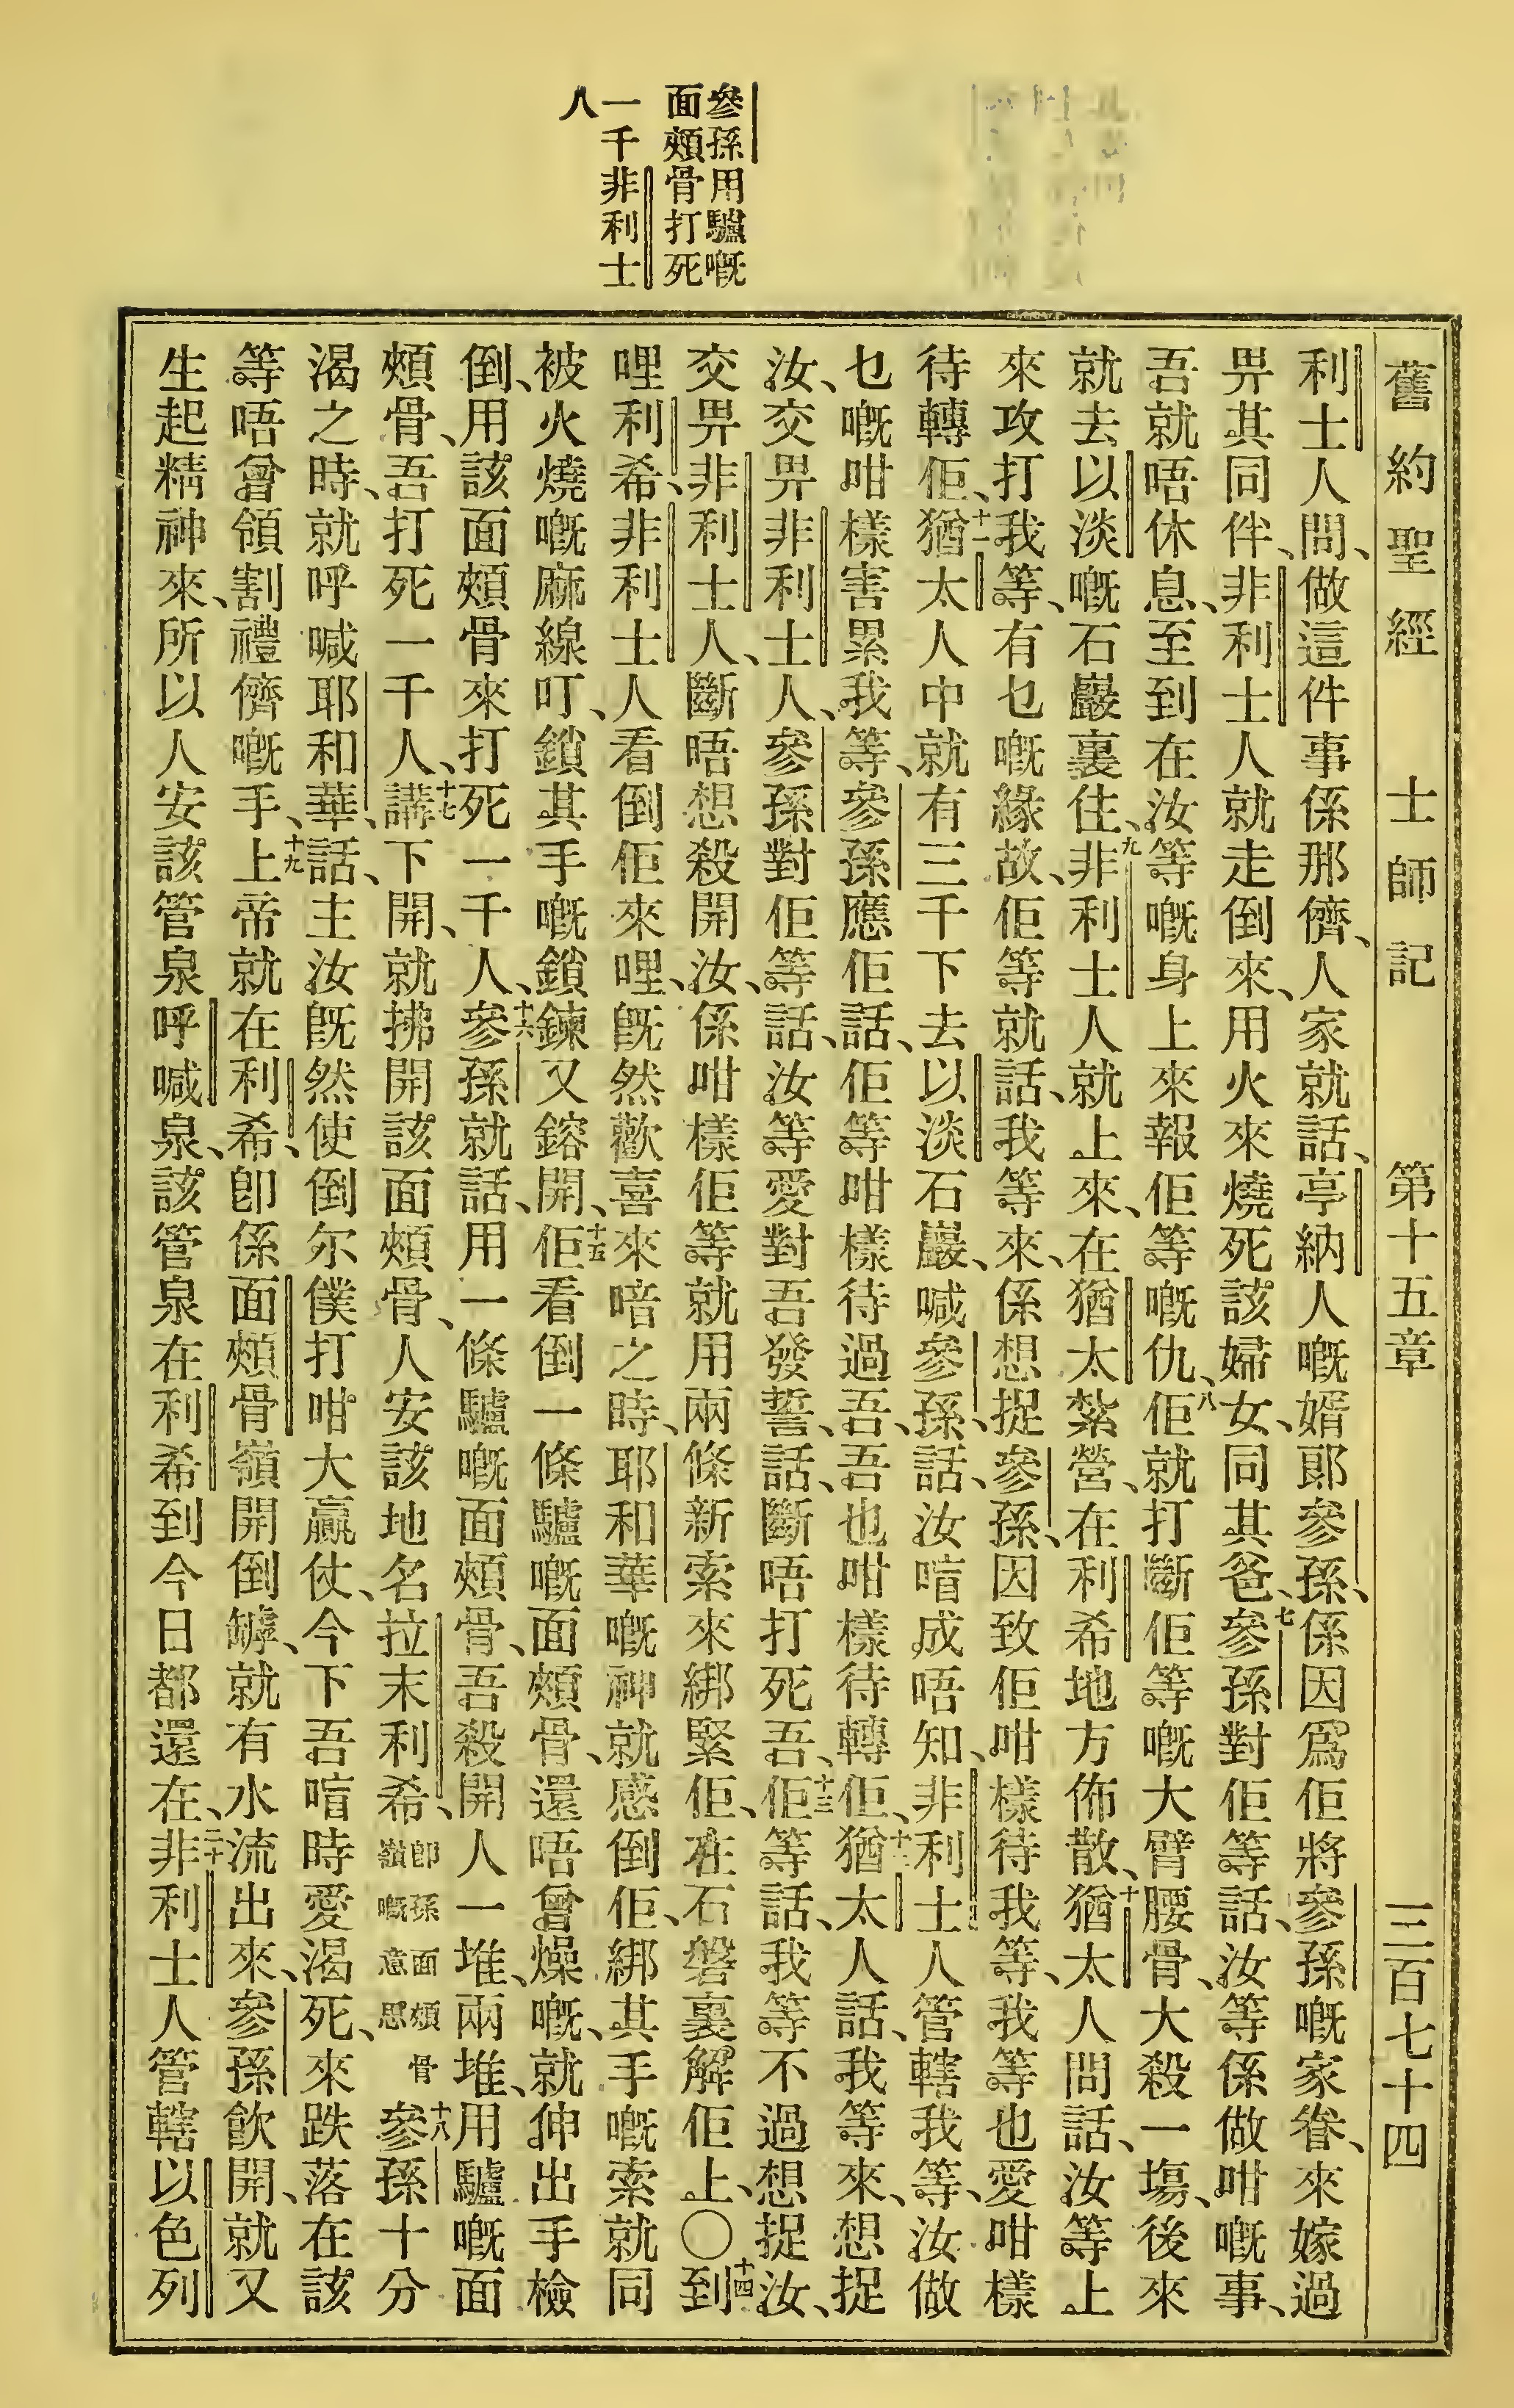 參孫用驢嘅
面頰骨打死
一千非利士
人
舊約聖經 士師記 第十五章 三百七十四
利士人問、做這件事係那儕、人家就話、亭納人嘅婿郎參孫、係因爲佢將參孫嘅家眷、來嫁過
畀其同伴、非利士人就走倒來、用火來燒死該婦女、同其爸、七參孫對佢等話、汝等係做咁嘅事、
吾就唔休息、至到在汝等嘅身上來報佢等嘅仇、八佢就打斷佢等嘅大臂腰骨、大殺一塲、後來
就去以淡嘅石巖裏住、九非利士人就上來、在猶太紮營、在利希地方佈散、十猶太人問話、汝等上
來攻打我等、有乜嘅緣故、佢等就話、我等來、係想捉參孫、因致佢咁樣待我等、我等也愛咁樣
待轉佢、十一猶太人中就有三千下去以淡石巖、喊參孫、話、汝喑成唔知、非利士人管轄我等、汝做
乜嘅咁樣害累我等、參孫應佢話、佢等咁樣待過吾、吾也咁樣待轉佢、十二猶太人話、我等來、想捉
汝、交畀非利士人、參孫對佢等話、汝等愛對吾發誓、話、斷唔打死吾、十三佢等話、我等不過想捉汝、
交畀非利士人、斷唔想殺開汝、係咁樣佢等就用兩條新索來綁緊佢、在石磐裏解佢上、〇十四到
哩利希、非利士人看倒佢來哩、旣然歡喜來喑之時、耶和華嘅神就感倒佢、綁其手嘅索就同
被火燒嘅麻線叮、鎖其手嘅鎖鍊又鎔開、十五佢看倒一條驢嘅面頰骨、還唔曾燥嘅、就伸出手檢
倒、用該面頰骨來打死一千人、十六參孫就話、用一條驢嘅面頰骨、吾殺開人一堆、兩堆、用驢嘅面
頰骨、吾打死一千人、十七講下開、就拂開該面頰骨、人安該地名拉末利希、卽孫面頰骨嶺嘅意思十八參孫十分
渴之時、就呼喊耶和華、話、主汝旣然使倒尔僕打咁大贏仗、今下吾喑時愛渴死、來跌落在該
等唔曾領割禮儕嘅手、十九上帝就在利希、卽係面頰骨嶺開倒罅、就有水流出來、參孫飮開、就又
生起精神來、所以人安該管泉呼喊泉、該管泉在利希到今日都還在、二十非利士人管轄以色列